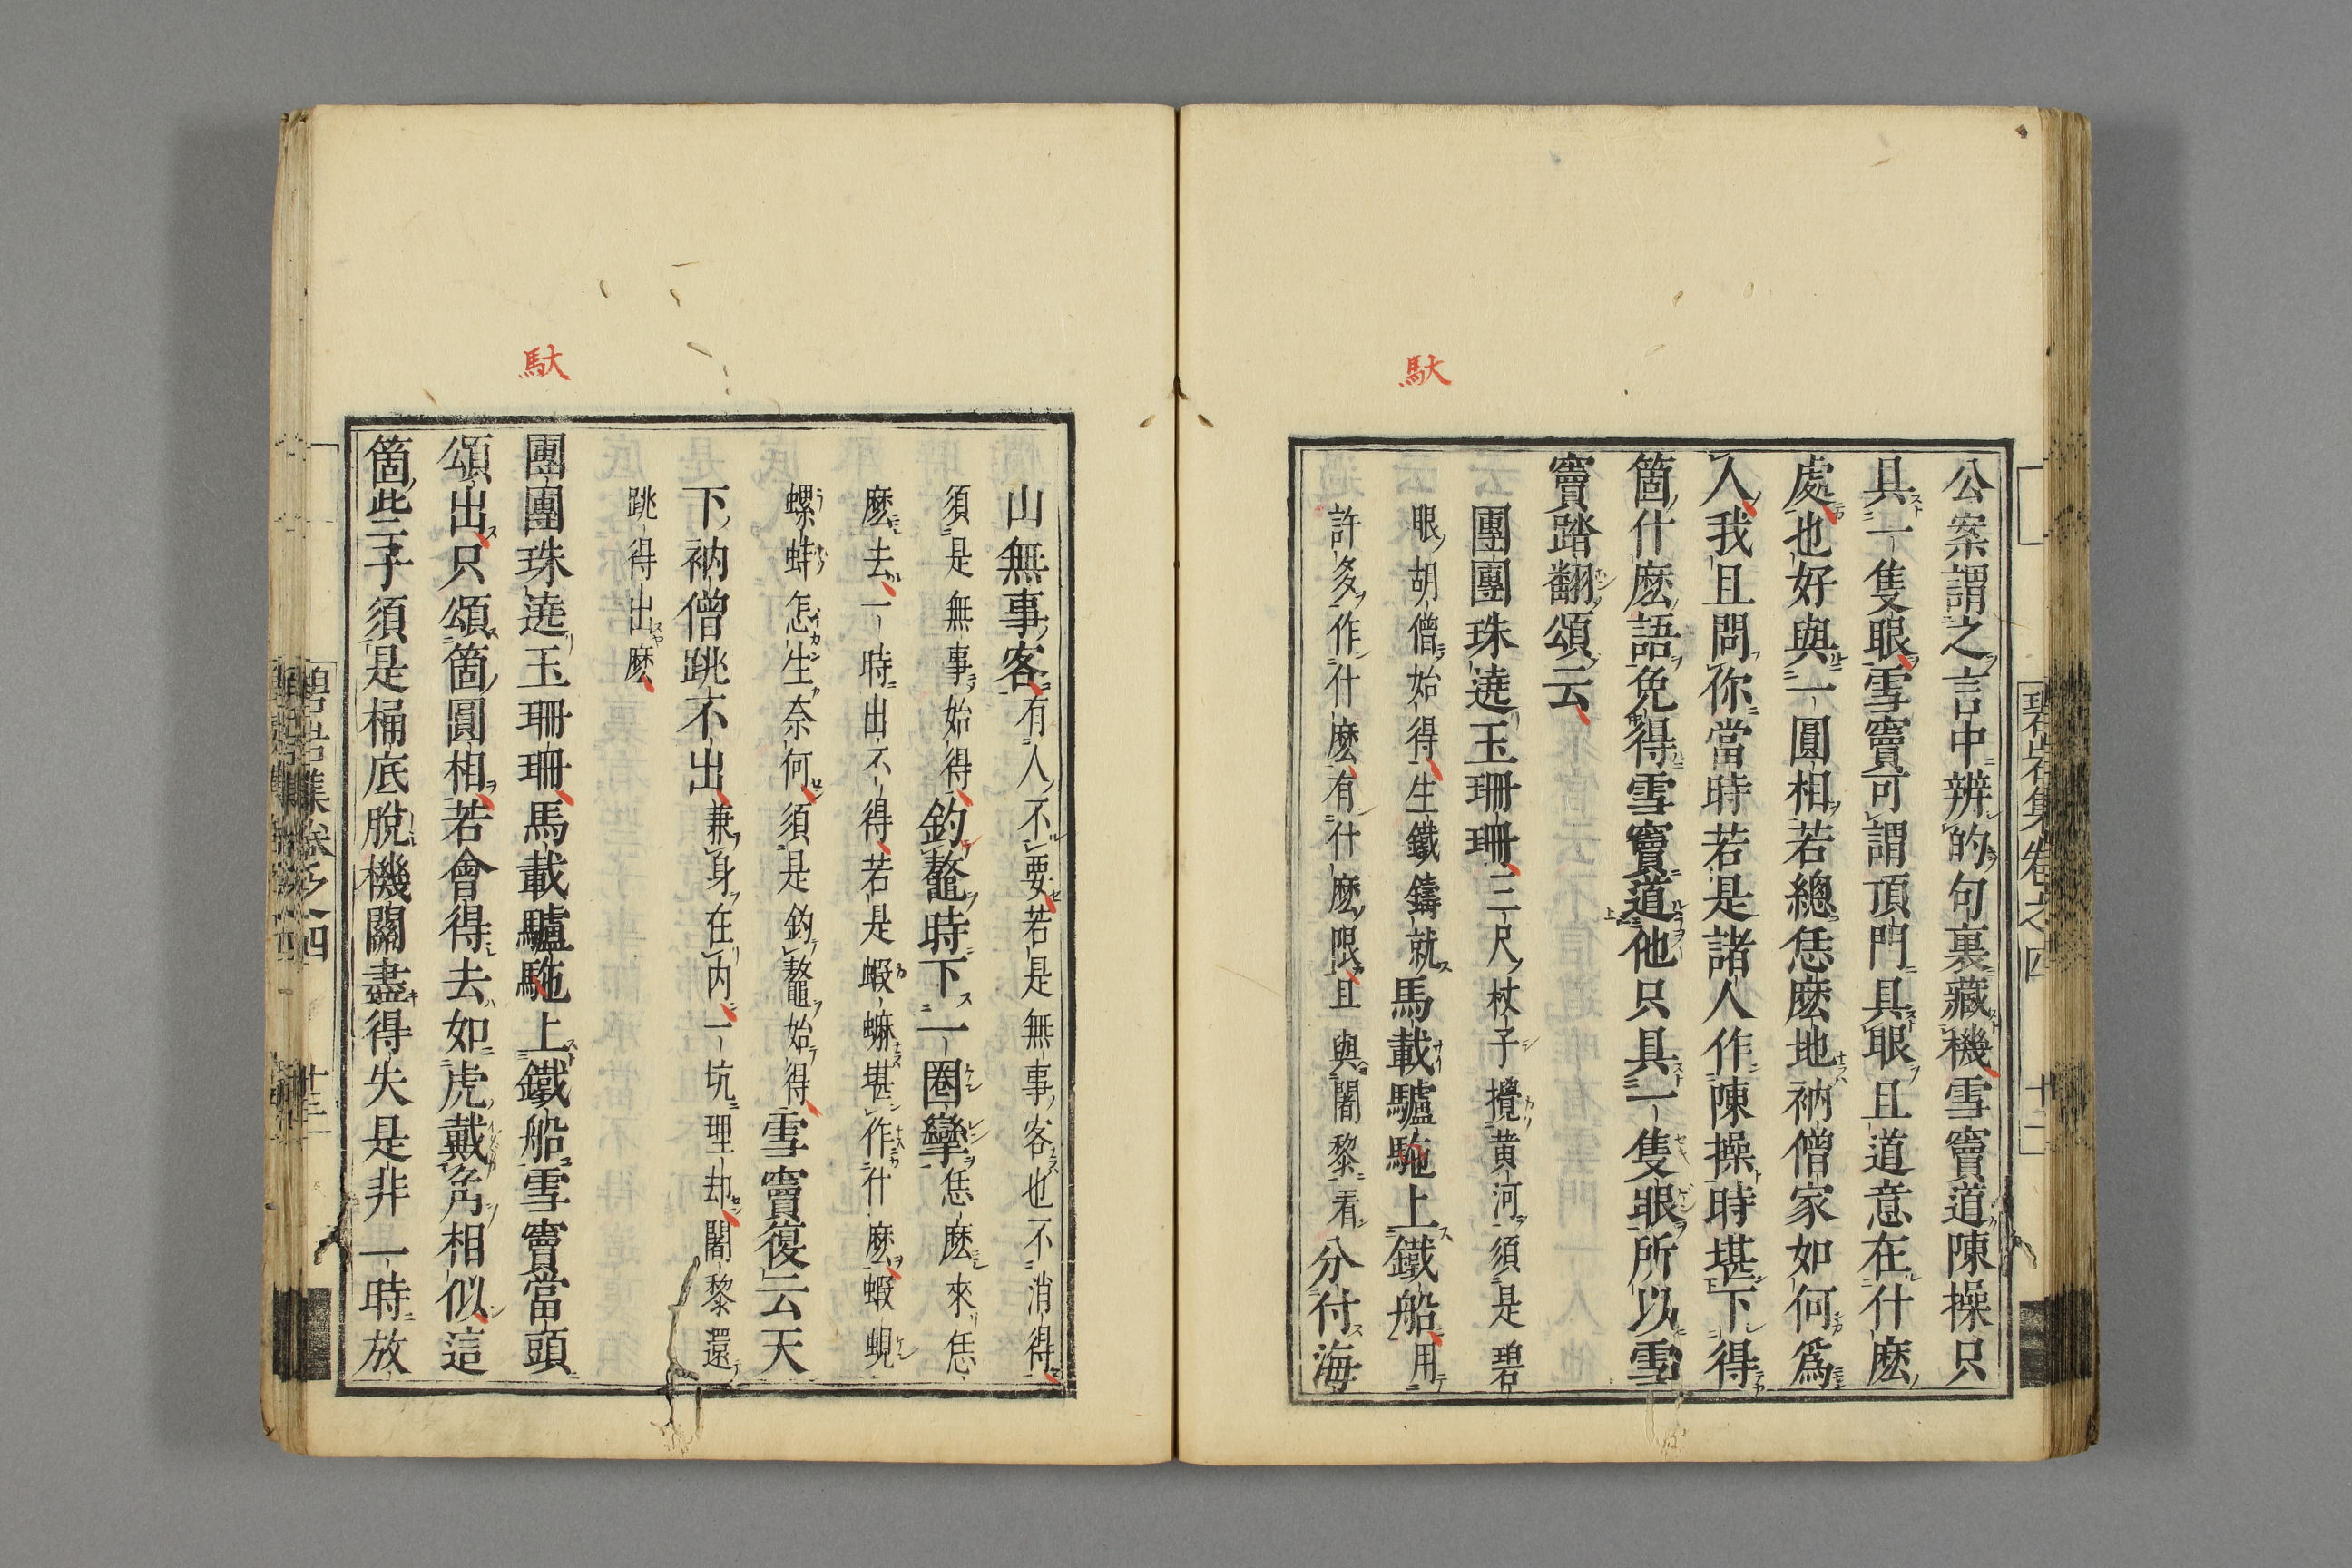 駄
公案謂之言中辨的句裏藏機雪竇道陳操只
具一隻眼雪竇可謂頂門具眼且道意在什麽
處也好與一圓相若總恁麽地衲僧家如何爲
人我且問你當時若是諸人作陳操時堪下得
箇什麽語免得雪竇道他只具一隻眼所以雪
竇踏翻頌云
團團珠遶玉珊珊三尺杖子攪黄河須是碧
眼胡僧始得生鐵鑄就馬載驢駞上鐵船用
許多作什麽有什麽限且與闍黎看分付海
碧岩集卷之四
十二
駄
山無事客有人不要若是無事客也不消得
須是無事始得釣鼇時下一圈攣恁麽來恁
麽去一時出不得若是蝦蟆堪作什麽蝦蜆
螺蚌怎生奈何須是釣鼇始得雪竇復云天
下衲僧跳不出兼身在内一坑埋却闍黎還
跳得出麽
團團珠遶玉珊珊馬載驢駞上鐵船雪竇當頭
頌出只頌箇圓相若會得去如虎戴角相似這
箇些子須是桶底脫機關盡得失是非一時放
碧岩集卷之四
十三